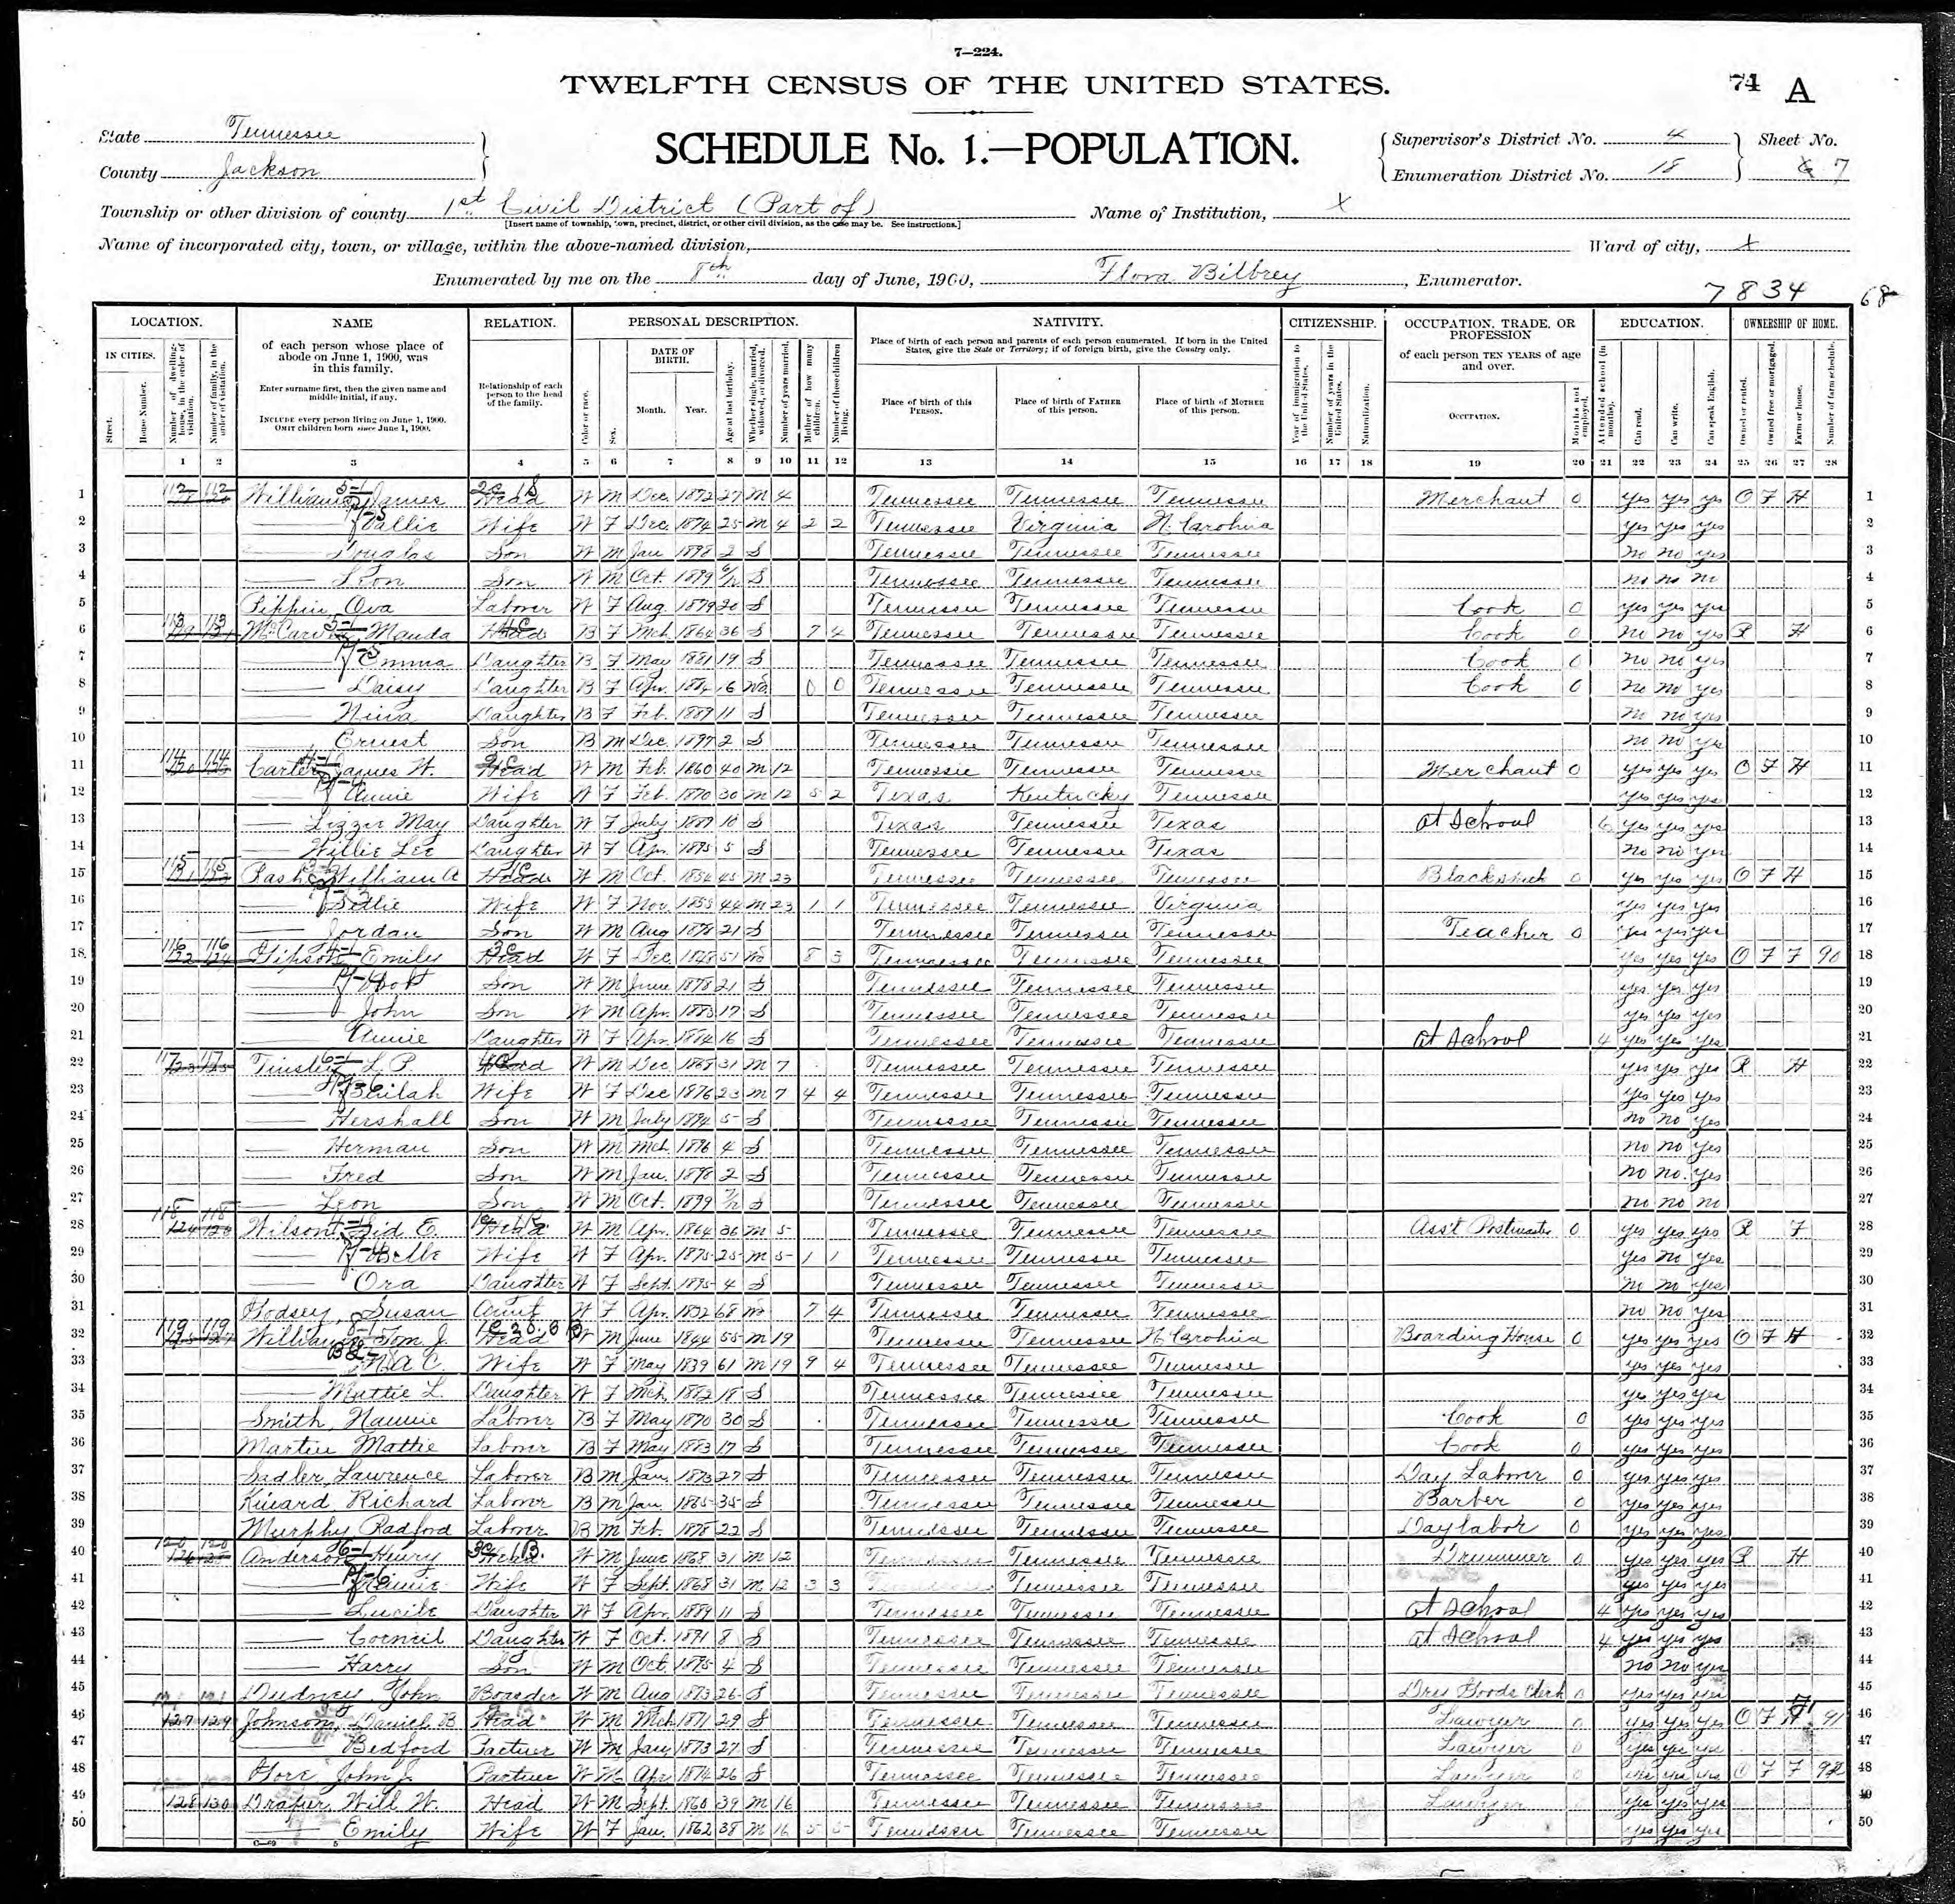 7—224.
TWELFTH CENSUS OF THE UNITED STATES.
74 A
State Tennessee
County Jackson
SCHEDULE No. 1.—POPULATION.
Supervisor's District No. 4
Enumeration District No. 18
Sheet No.
7
Township or other division of county 1st Civil District (Part of)
[Insert name of township, town, precinct, district, or other civil division, as the case may be. See instructions.]
Name of Institution, X
Name of incorporated city, town, or village, within the above-named division,
Ward of city, X
Enumerated by me on the 8th day of June, 1900, Flora Bilbrey, Enumerator.
7834 68
LOCATION. NAME RELATION. PERSONAL DESCRIPTION. NATIVITY. CITIZENSHIP. OCCUPATION, TRADE, OR PROFESSION EDUCATION. OWNERSHIP OF HOME.
IN CITIES.
Street.
House Number.
Number of dwelling-house, in the order of visitation.
Number of family, in the order of visitation.
of each person whose place of abode on June 1, 1900, was in this family.
Enter surname first, then the given name and middle initial, if any.
INCLUDE every person living on June 1, 1900.
OMIT children born since June 1, 1900.
Relationship of each person to the head of the family.
Color or race.
Sex.
DATE OF BIRTH.
Month. Year.
Age at last birthday.
Whether single, married, widowed, or divorced.
Number of years married.
Mother of how many children.
Number of these children living.
Place of birth of each person and parents of each person enumerated. If born in the United States, give the State or Territory; if of foreign birth, give the Country only.
Place of birth of this PERSON.
Place of birth of FATHER of this person.
Place of birth of MOTHER of this person.
Year of immigration to the United States.
Number of years in the United States.
Naturalization.
of each person TEN YEARS of age and over.
OCCUPATION.
Months not employed.
Attended school (in months).
Can read.
Can write.
Can speak English.
Owned or rented.
Owned free or mortgaged.
Farm or house.
Number of farm schedule.
1 2 3 4 5 6 7 8 9 10 11 12 13 14 15 16 17 18 19 20 21 22 23 24 25 26 27 28
1 112 112 Williams James Head W M Dec 1872 27 M 4 Tennessee Tennessee Tennessee Merchant 0 yes yes yes O F H 1
2 Wife W F Dec 1874 25 M 4 2 2 Tennessee Virginia N. Carolina yes yes yes 2
3 Douglas Son W M Jan 1898 2 S Tennessee Tennessee Tennessee no no yes 3
4 Leon Son W M Oct. 1899 S Tennessee Tennessee Tennessee no no no 4
5 Pippin Ova Laborer W F Aug. 1879 20 S Tennessee Tennessee Tennessee Cook 0 yes yes yes 5
6 113 113 Manda Head B F Mch 1864 36 S 7 4 Tennessee Tennessee Tennessee Cook 0 no no yes R H 6
7 Emma Daughter B F May 1881 19 S Tennessee Tennessee Tennessee Cook 0 no no yes 7
8 Daisy Daughter B F Apr. 1884 16 Wd 0 0 Tennessee Tennessee Tennessee Cook 0 no no yes 8
9 Nina Daughter B F Feb. 1889 11 S Tennessee Tennessee Tennessee no no yes 9
10 Ernest Son B M Dec. 1897 2 S Tennessee Tennessee Tennessee no no yes 10
11 114 114 Carter James W. Head W M Feb. 1860 40 M 12 Tennessee Tennessee Tennessee Merchant 0 yes yes yes O F H 11
12 Annie Wife W F Feb. 1870 30 M 12 5 2 Texas Kentucky Tennessee yes yes yes 12
13 Lizzie May Daughter W F July 1889 10 S Texas Tennessee Texas at School 6 yes yes yes 13
14 Willie Lee Daughter W F Apr. 1895 5 S Tennessee Tennessee Texas no no yes 14
15 115 115 William A Head W M Oct. 1854 45 M 23 Tennessee Tennessee Tennessee Blacksmith 0 yes yes yes O F H 15
16 Wife W F Nov. 1855 44 M 23 1 1 Tennessee Tennessee Virginia yes yes yes 16
17 Jordan Son W M Aug 1878 21 S Tennessee Tennessee Tennessee Teacher 0 yes yes yes 17
18 116 116 Gipson Emily Head W F Dec. 51 Wd 8 3 Tennessee Tennessee Tennessee yes yes yes O F F 90 18
19 Son W M June 1878 21 S Tennessee Tennessee Tennessee yes yes yes 19
20 John Son W M Apr. 1883 17 S Tennessee Tennessee Tennessee yes yes yes 20
21 Annie Daughter W F Apr. 1884 16 S Tennessee Tennessee Tennessee at School 4 yes yes yes 21
22 117 117 Tinsley L. P. Head W M Dec 1868 31 M 7 Tennessee Tennessee Tennessee yes yes yes R H 22
23 Beulah Wife W F Dec 1876 23 M 7 4 4 Tennessee Tennessee Tennessee yes yes yes 23
24 Hershall Son W M July 1894 5 S Tennessee Tennessee Tennessee no no yes 24
25 Herman Son W M Mch 1896 4 S Tennessee Tennessee Tennessee no no yes 25
26 Fred Son W M Jan. 1898 2 S Tennessee Tennessee Tennessee no no yes 26
27 Leon Son W M Oct. 1899 7/12 S Tennessee Tennessee Tennessee no no no 27
28 118 118 Wilson Sid E. Head W M Apr. 1864 36 M 5 Tennessee Tennessee Tennessee Ass't Postmaster 0 yes yes yes R F 28
29 Belle Wife W F Apr. 1875 25 M 5 1 1 Tennessee Tennessee Tennessee yes no yes 29
30 Ora Daughter W F Sept. 1895 4 S Tennessee Tennessee Tennessee no no yes 30
31 Godsey, Susan Aunt W F Apr. 1832 68 Wd 7 4 Tennessee Tennessee Tennessee no no yes 31
32 119 119 Williams Tom J. Head W M June 1844 55 M 19 Tennessee Tennessee N. Carolina Boarding House 0 yes yes yes O F H 32
33 Wife W F May 1839 61 M 19 9 4 Tennessee Tennessee Tennessee yes yes yes 33
34 Mattie L. Daughter W F Mch 1882 18 S Tennessee Tennessee Tennessee yes yes yes 34
35 Smith, Nannie Laborer B F May 1870 30 S Tennessee Tennessee Tennessee Cook 0 yes yes yes 35
36 Martin Mattie Laborer B F May 1883 17 S Tennessee Tennessee Tennessee Cook 0 yes yes yes 36
37 Sadler, Lawrence Laborer B M Jan. 1873 27 S Tennessee Tennessee Tennessee Day Laborer 0 yes yes yes 37
38 Kinard, Richard Laborer B M Jan. 1865 35 S Tennessee Tennessee Tennessee Barber 0 yes yes yes 38
39 Murphy Radford Laborer B M Feb. 1878 22 S Tennessee Tennessee Tennessee Day labor 0 yes yes yes 39
40 120 120 Anderson Henry Head W M June 1868 31 M 12 Tennessee Tennessee Tennessee Drummer 0 yes yes yes R H 40
41 Wife W F Sept. 1868 31 M 12 3 3 Tennessee Tennessee yes yes yes 41
42 Lucile Daughter W F Apr. 1889 11 S Tennessee Tennessee Tennessee at School 4 yes yes yes 42
43 Corneil Daughter W F Oct. 1891 8 S Tennessee Tennessee Tennessee at School 4 yes yes yes 43
44 Harry Son W M Oct. 1895 4 S Tennessee Tennessee Tennessee no no yes 44
45 Dudney, John Boarder W M Aug 1873 26 S Tennessee Tennessee Tennessee Dry Goods Clerk 0 yes yes yes 45
46 127 129 Johnson, Daniel B Head W M Mch 1871 29 S Tennessee Tennessee Tennessee Lawyer 0 yes yes yes O F 91 46
47 Bedford Partner W M Jan. 1873 27 S Tennessee Tennessee Tennessee Lawyer 0 yes yes yes 47
48 Gore John J. Partner W M Apr 1874 26 S Tennessee Tennessee Tennessee Lawyer 0 yes yes yes O F F 92 48
49 128 130 Draper, Will W. Head W M Sept. 1860 39 M 16 Tennessee Tennessee Tennessee Lawyer yes yes yes 49
50 Emily Wife W F Jan. 1862 38 M 16 5 5 Tennessee Tennessee Tennessee yes yes yes 50